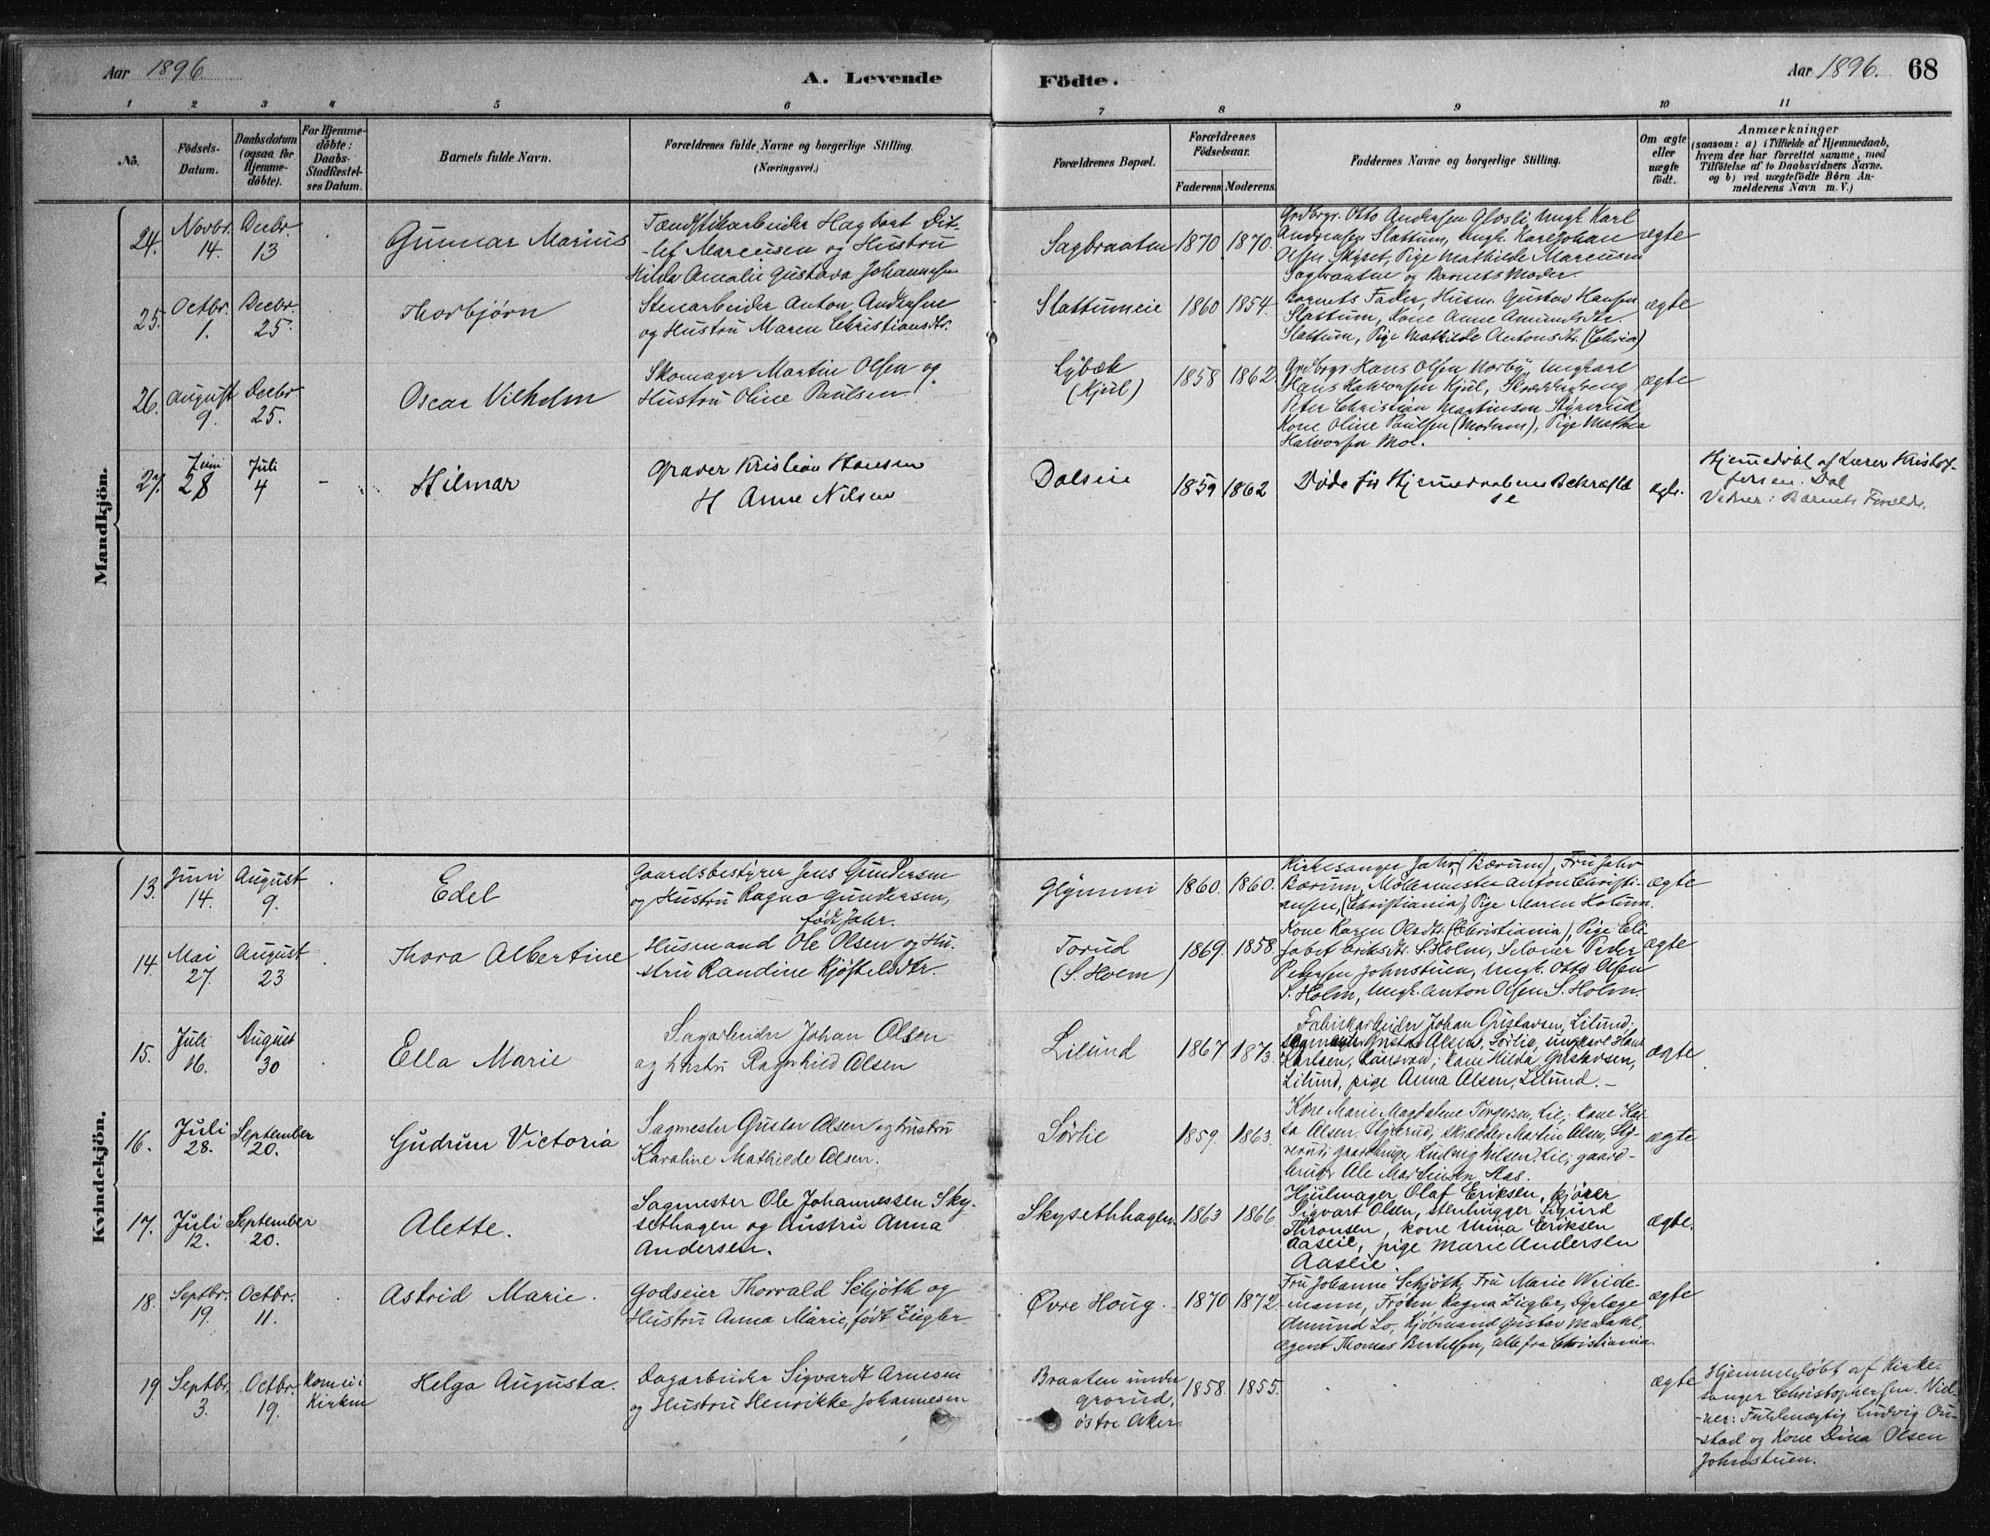 Aar 1896. A. Levende Födte. Aar 1896. 68
1 2 3 4 5 6 7 8 9 10 11
No.
Födsels-
Datum.
Daabsdatum
(ogsaa for
Hjemme-
döbte).
For Hjemme-
döbte:
Daabs-
Stadfæstel-
ses Datum.
Barnets fulde Navn.
Forældrenes fulde Navne og borgerlige Stilling.
(Næringsvei.)
Forældrenes Bopæl.
Forældrenes
Födselsaar.
Faderens. Moderens.
Faddernes Navne og borgerlige Stilling.
Om ægte
eller
uægte
födt.
Anmærkninger
(saasom: a) i Tilfælde af Hjemmedaab,
hvem der har forrettet samme, med
Tilföielse af to Daabsvidners Navne.
og b) ved uægtefödte Börn An-
melderens Navn m. V.)
Mandkjön.
24.
Novbr.
14.
Decbr.
13
Gunnar Marius
Tændstikarbeider Hagbart Dit-
-lef Marcusen og Hustru
Hilda Amalie Gustava Johannesen
Sagbraaten
1870
1870.
Grdbrgr. Otto Andersen Glosli, Ungk. Karl
Andreasen Slattum, Ungk. Karl Johan
Olsen Skyset, Pige Mathilde Marcusen
Sagbraaten og Barnets Moder.
ægte
25.
Octbr.
1.
Decbr.
25.
Thorbjørn
Stenarbeider Anton Andersen
og Hustru Maren Christiansdtr.
Slattumeie
1860
1854.
Barnets Fader, Husm. Gustav Hansen
Slattum, Kone Anne Amundsdtr.
Slattum, Pige Mathilde Antonsdtr. (Chria)
ægte
26.
August
9.
Decbr
25.
Oscar Vilhelm
Skomager Martin Olsen og
Hustru Oline Paulsen.
Lybæk
(Kjul)
1858
1862
Grdbrgr. Hans Olsen Norby, Ungkarl
Hans Halvorsen Kjul,
Peter Christian Martinsen Styrerud,
Kone Oline Paulsen (Moderen), Pige Mathea
Halvorsen Moe.
ægte
27.
Juni
28
Juli
4
-
Hilmar
Graver Kristian Hansen
H Anne Nilsen
Dalseie
1859
1862
Døde før Hjemmedaabens Bekræftel
se
ægte.
Hjemmedøbt af Lærer Kristof-
fersen. Dal
Vidner: Barnets Forældre.
Kvindekjön.
13.
Juni
14.
August
9.
Edel
Gaardsbestyrer Jens Gundersen
og Hustru Ragna Gundersen,
født Jahr.
Glynmi
1860.
1860.
Kirkesanger Jahr, (Bærum), Fru Jahr
Bærum, Møllemester Anton Christi-
ansen, (Christiania), Pige Maren Holum.
ægte
14.
Mai
27.
August
23
Thora Albertine
Husmand Ole Olsen og Hu-
stru Randine Kjøstelsdtr.
Torud
(S. Holm)
1869.
1858.
Kone Karen Olsdtr. (Christiania), Pige Eli-
sabet Eriksdtr. S. Holm, Selveier Peder
Pedersen Johnstuen, Ungk. Otto Olsen
S. Holm, Ungk. Anton Olsen S. Holm.
ægte
15.
Juli
16.
August
30
Ella Marie
Sagarbeider Johan Olsen
og hustru Ragnhild Olsen
Lilund
1867
1873.
Fabrikarbeider Johan Gustavsen, Lilund,
sagmester Gustav Olsen, Sørlie, ungkarl Hans
Karlsen, kone Hilda Gustavsen,
Lilund, pige Anna Olsen, Lilund. –
ægte
16.
Juli
28.
September
20.
Gudrun Victoria
Sagmester Gustav Olsen og hustru
Karoline Mathilde Olsen.
Sørlie
1859.
1863.
Kone Marie Magdalene Torgersen, Lie, kone
Olsen, Styrerud; skrædder Martin Olsen, Sty-
rerud; gaardbruger Ludvig Nilsen, Lie; gaard-
bruger Ole Martinsen Aas.
ægte
17.
Juli
12.
September
20.
Alette.
Sagmester Ole Johannessen Sky-
sethagen og hustru Anna
Andersen.
Skysethhagen
1863
1866.
Hjulmager Olaf Eriksen, kjører
Sigvart Olsen, stenhugger Sigurd
Thronsen, kone Mina Eriksen
Aaslie, pige Marie Andersen
Aaslie
ægte.
18.
Septbr.
19.
Octbr.
11.
Astrid Marie.
Godseier Thorvald Schjøth og
Hustru Anna Marie, født Ziegler
Øvre Houg.
1870
1872.
Fru Johanne Schjøth, Fru Marie Weide-
mann, Frøken Ragna Ziegler, Dyrlæge
Amund Lo, Kjøbmand Gustav M.
Agent Thomas Bertelsen, alle fra Christiania.
ægte
19
Septbr.
3.
Octbr.
19.
Kom ei i
Kirken
Helga Augusta.
Dagarbeider Sigvardt Arnesen
og Hustru Henrikke Johannesen
Braaten under
Grorud,
østre Aker
1858.
1855.
ægte
Hjemmedøbt af Kirke-
sanger Christophersen. Vid-
-ner: Fuldmægtig Ludvig On-
-stad og Kone Dina Olsen
Johnstuen.